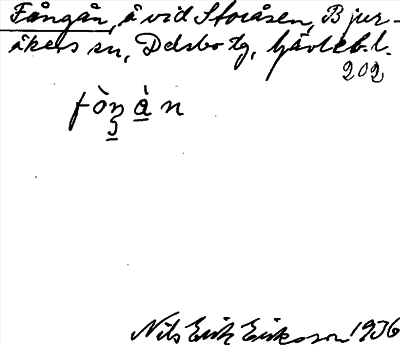 Fångån, å vid Storåsen, Bjur-
åkers sn, Delsbo tg, Gävleb. l.
202
fòŋ à n
Nils Erik Eriksson 1936